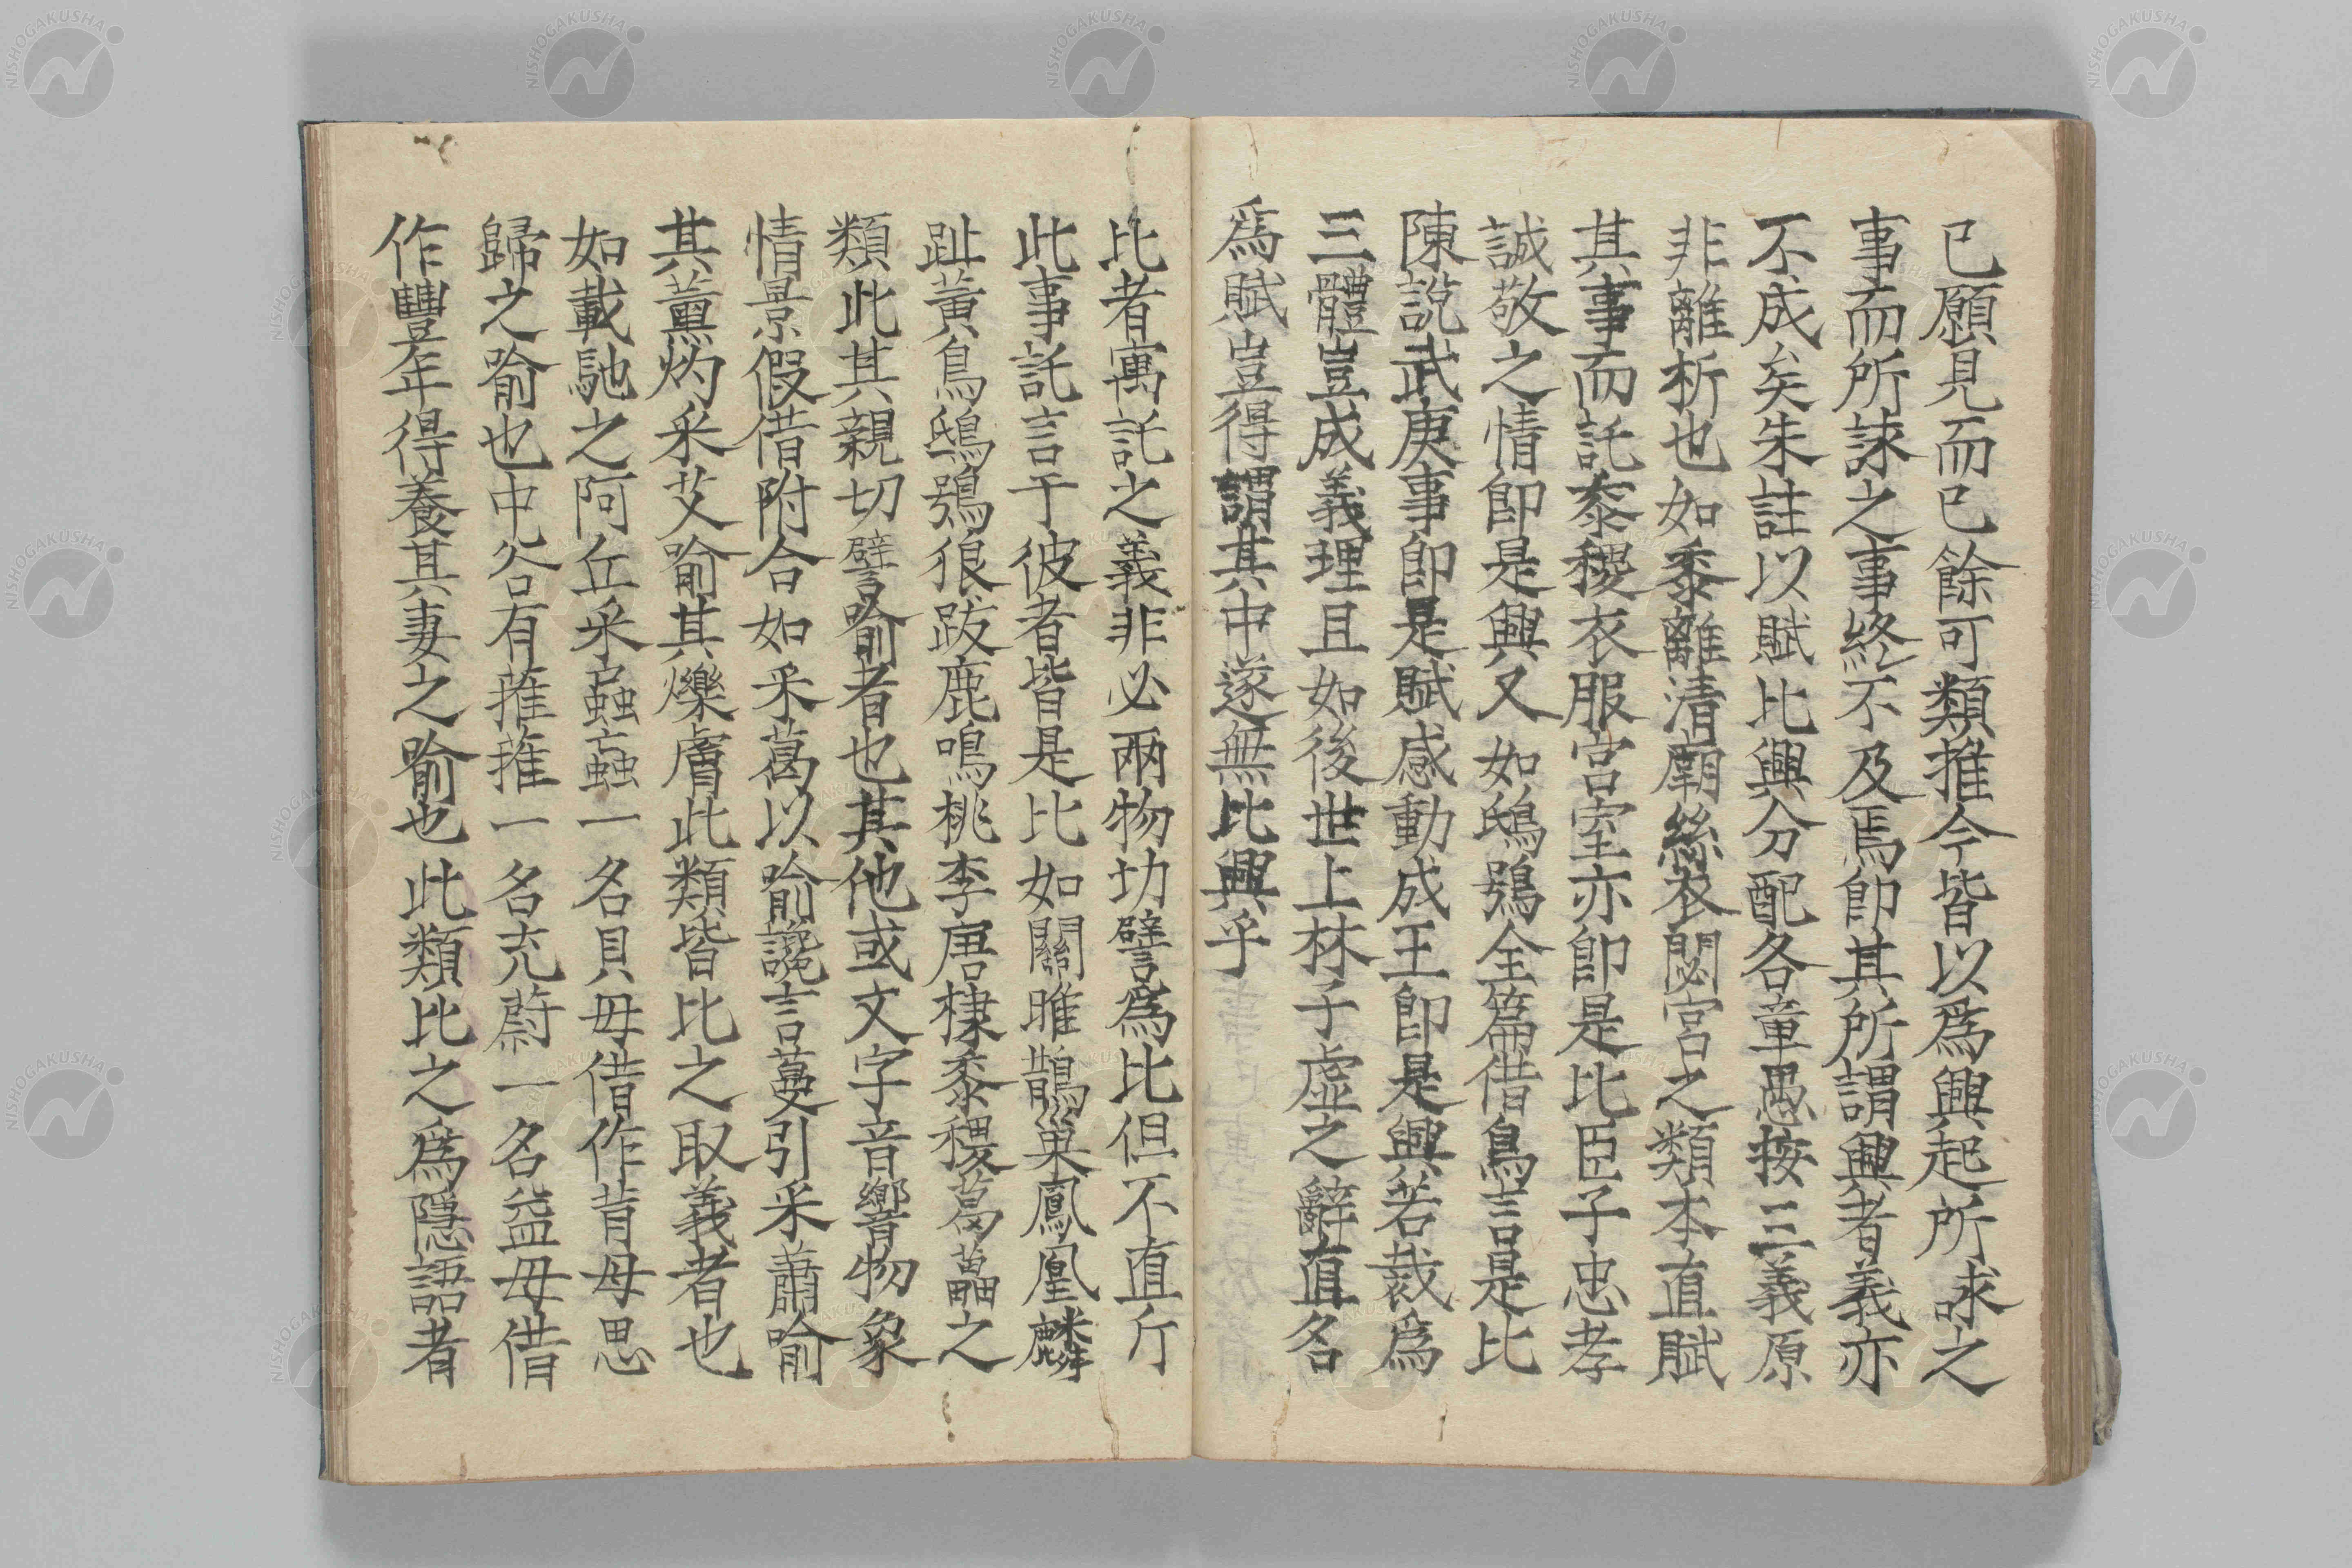 已願見而已餘可類推今皆以爲興起所求之
事而所諫之事終不及焉卽其所謂興者義亦
不成矣朱註以賦比興分配各章愚按三義原
非離析也如黍離清廟絲衣閟宮之類本直賦
其事而託黍稷衣服宮室亦卽是比臣子忠孝
誠敬之情卽是興又如鴟鴞全篇借鳥言是比
陳說武庚事卽是賦感動成王卽是興若裁爲
三體豈成義理且如後世上林子虛之辭直名
爲賦豈得謂其中遂無比興乎
比者寓託之義非必兩物切譬爲比但不直斤
此事託言于彼者皆是比如關雎鵲巢鳳凰麟
趾黃鳥鴟鴞狼跋鹿鳴桃李唐棣黍稷葛藟之
類此其親切譬喻者也其他或文字音響物象
情景假借附合如采葛以喻讒言蔓引采蕭喻
其薰灼采艾喻其爍膚此類皆比之取義者也
如載馳之阿丘采蝱蝱一名貝母借作背母思
歸之喻也中谷有蓷蓷一名充蔚一名益母借
作豐年得養其妻之喻也此類比之爲隱語者